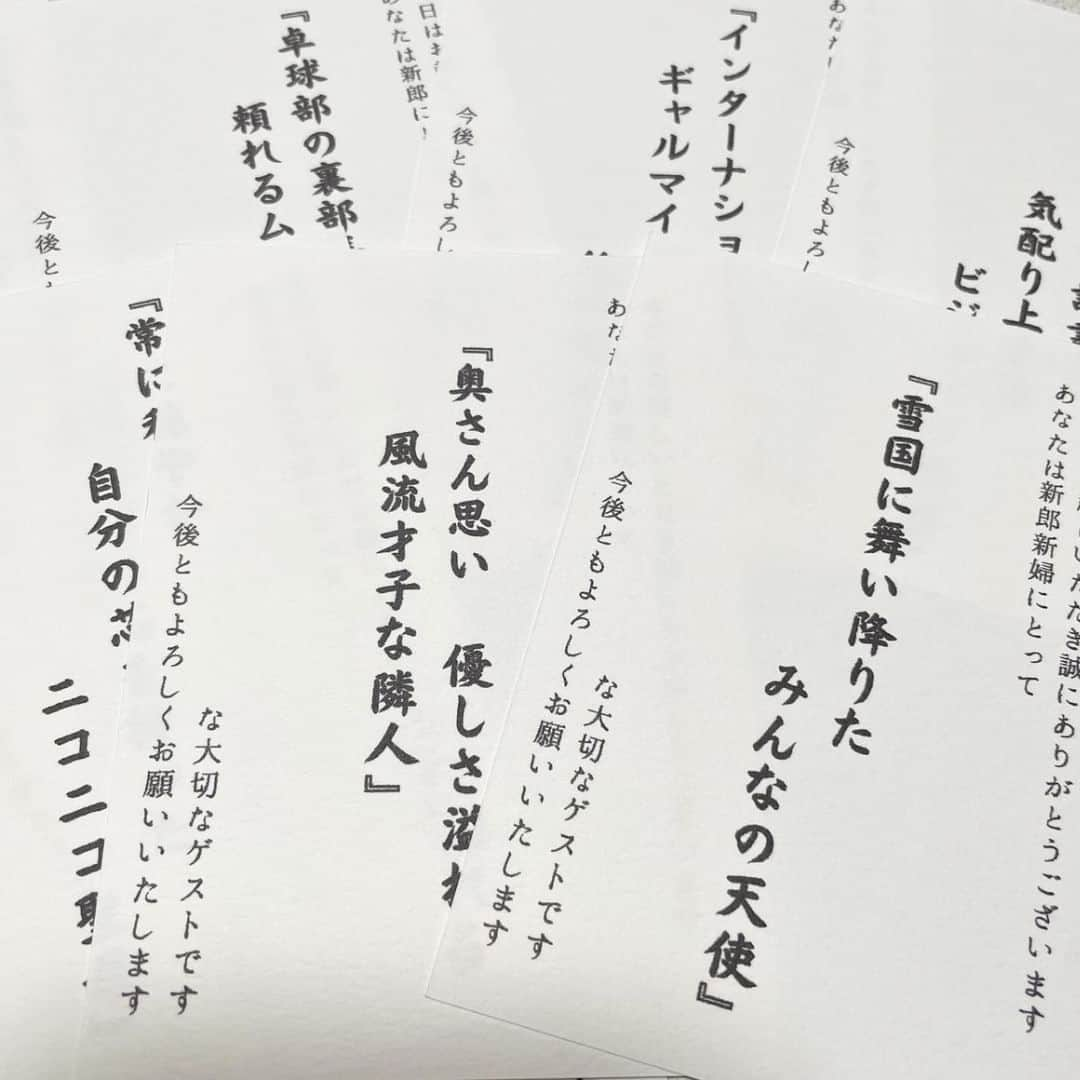 『卓球部の裏部
頼れるム
今後と
あなたは新郎に
今後ともよろし
『インターナショ
ギャルマイ
今後ともよろし
気配り上
ビジ
『常に
自分の
ニコニコ
な大切なゲストです
今後ともよろしくお願いいたします
『奥さん思い　優しさ溢れ
風流才子な隣人』
な大切なゲストです
今後ともよろしくお願いいたします
いただき誠にありがとうございます
あなたは新郎新婦にとって
『雪国に舞い降りた
みんなの天使』